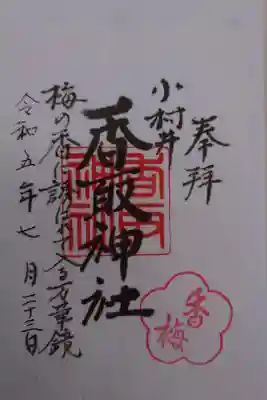 奉拝
小村井
香取神社
梅の香に誘はれ入る万華鏡
令和五年七月二十三日
香梅